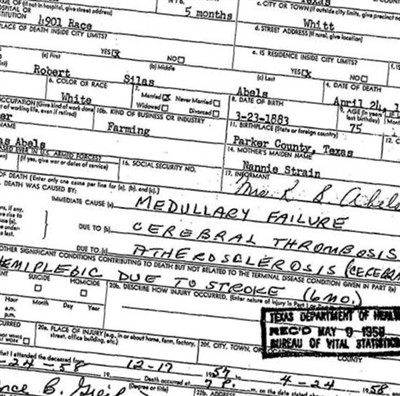 5 months
Texas
c. CITY OR TOWN (If outside city limits, give precinct no.
Whitt
HOSPITAL OR
INSTITUTION
4901 Race
d. STREET ADDRESS (If rural, give location)
PLACE OF DEATH INSIDE CITY LIMITS?
YES NO
e. IS RESIDENCE INSIDE CITY LIMITS?
YES NO
(a) First (b) Middle (c) Last
Robert Silas Abels
4. DATE OF DEATH
April 24,
6. COLOR OR RACE
White
7. Married Never Married
Widowed Divorced
8. DATE OF BIRTH
3-23-1883
AGE (In years
last birthday)
75
OCCUPATION (Give kind of work done
of working life, even if retired)
10b. KIND OF BUSINESS OR INDUSTRY
Farming
11. BIRTHPLACE (State or foreign country)
Parker County, Texas
NAME
as Abels
14. MOTHER'S MAIDEN NAME
Nannie Strain
IN U.S. ARMED FORCES?
(If yes, give war or dates of service)
16. SOCIAL SECURITY NO.
17. INFORMANT
Mrs. R S Abels
OF DEATH (Enter only one cause per line for (a), (b), and (c).)
DEATH WAS CAUSED BY:
IMMEDIATE CAUSE (a) MEDULLARY FAILURE
DUE TO (b) CEREBRAL THROMBOSIS
DUE TO (c) ATHEROSCLEROSIS (CEREBR
OTHER SIGNIFICANT CONDITIONS CONTRIBUTING TO DEATH BUT NOT RELATED TO THE TERMINAL DISEASE CONDITION GIVEN IN PART I(a)
HEMIPLEGIC DUE TO STROKE (6 mo.)
SUICIDE HOMICIDE
20b. DESCRIBE HOW INJURY OCCURRED. (Enter nature of injury in Part I or
Hour Month Day Year
TEXAS DEPARTMENT OF HEALTH
REC'D MAY 9 1958
BUREAU OF VITAL STATISTICS
OCCURRED
20e. PLACE OF INJURY (e.g., in or about home, farm, factory,
street, office building, etc.)
20f. CITY, TOWN,
COUNTY
that I attended the deceased from
-24-58 12-17 1957 4-24 1958
Death occurred at 7 P. m. on the date stated above
(Degree or title)
22b. ADDRESS